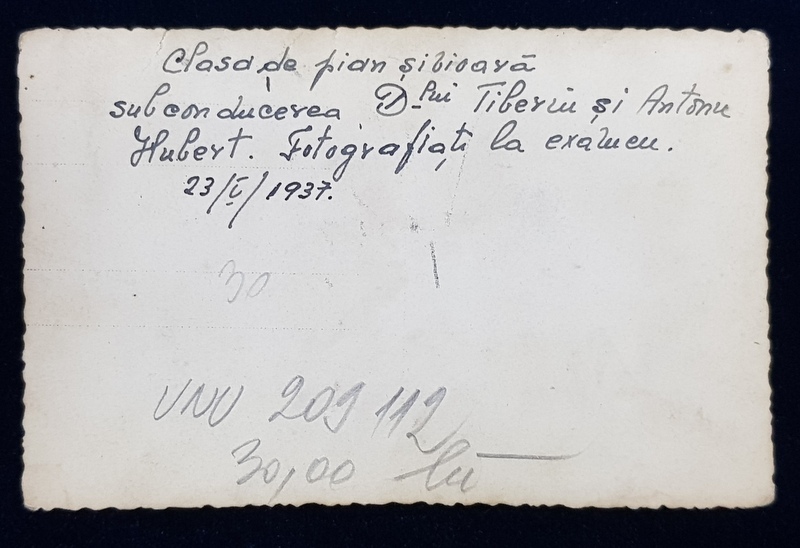 Clasa de pian și vioară
subconducerea D-lui Tiberiu și Antonu
Hubert. Fotografiați la examen.
23/I/1937.
30
VNV 209 112
30,00 lei